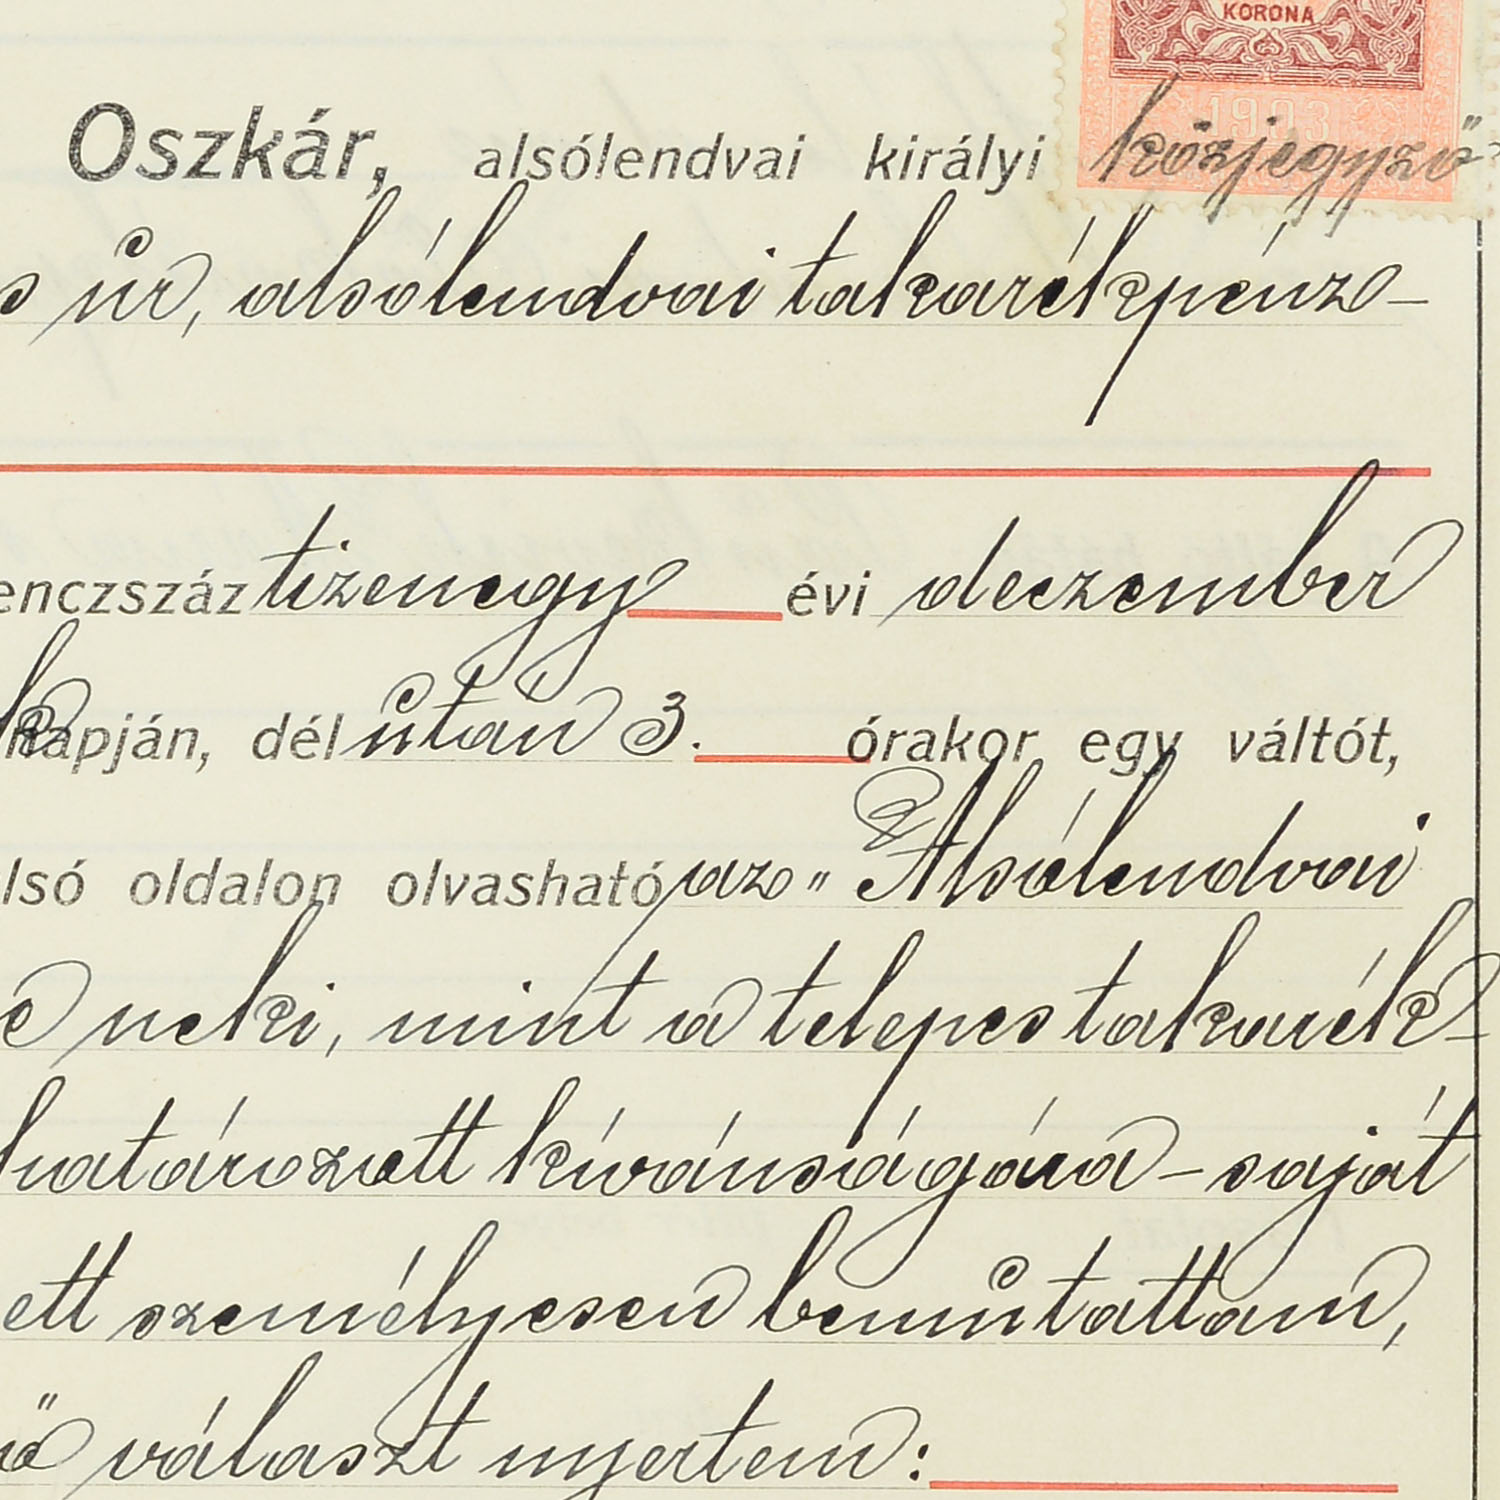 KORONA
1903
Oszkár, alsólendvai királyi közjegyző
s úr, alsólendvai takarékpénz-
enczszáz tizenegy évi deczember
k napján, dél után 3. órakor egy váltót,
lső oldalon olvasható az „Alsólendvai
e neki, mint a telepes takarék-
határozott kívánságára - saját
ett személyesen bemutattam,
ő választ nyertem: